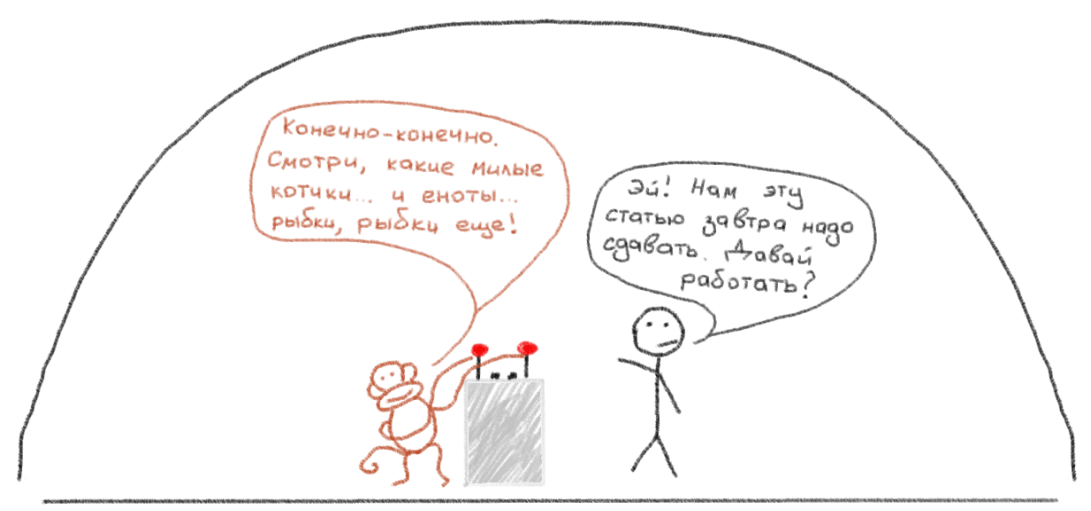 Конечно-конечно.
Смотри, какие милые
котики... и еноты...
рыбки, рыбки еще!
Эй! Нам эту
статью завтра надо
сдавать. Давай
работать?